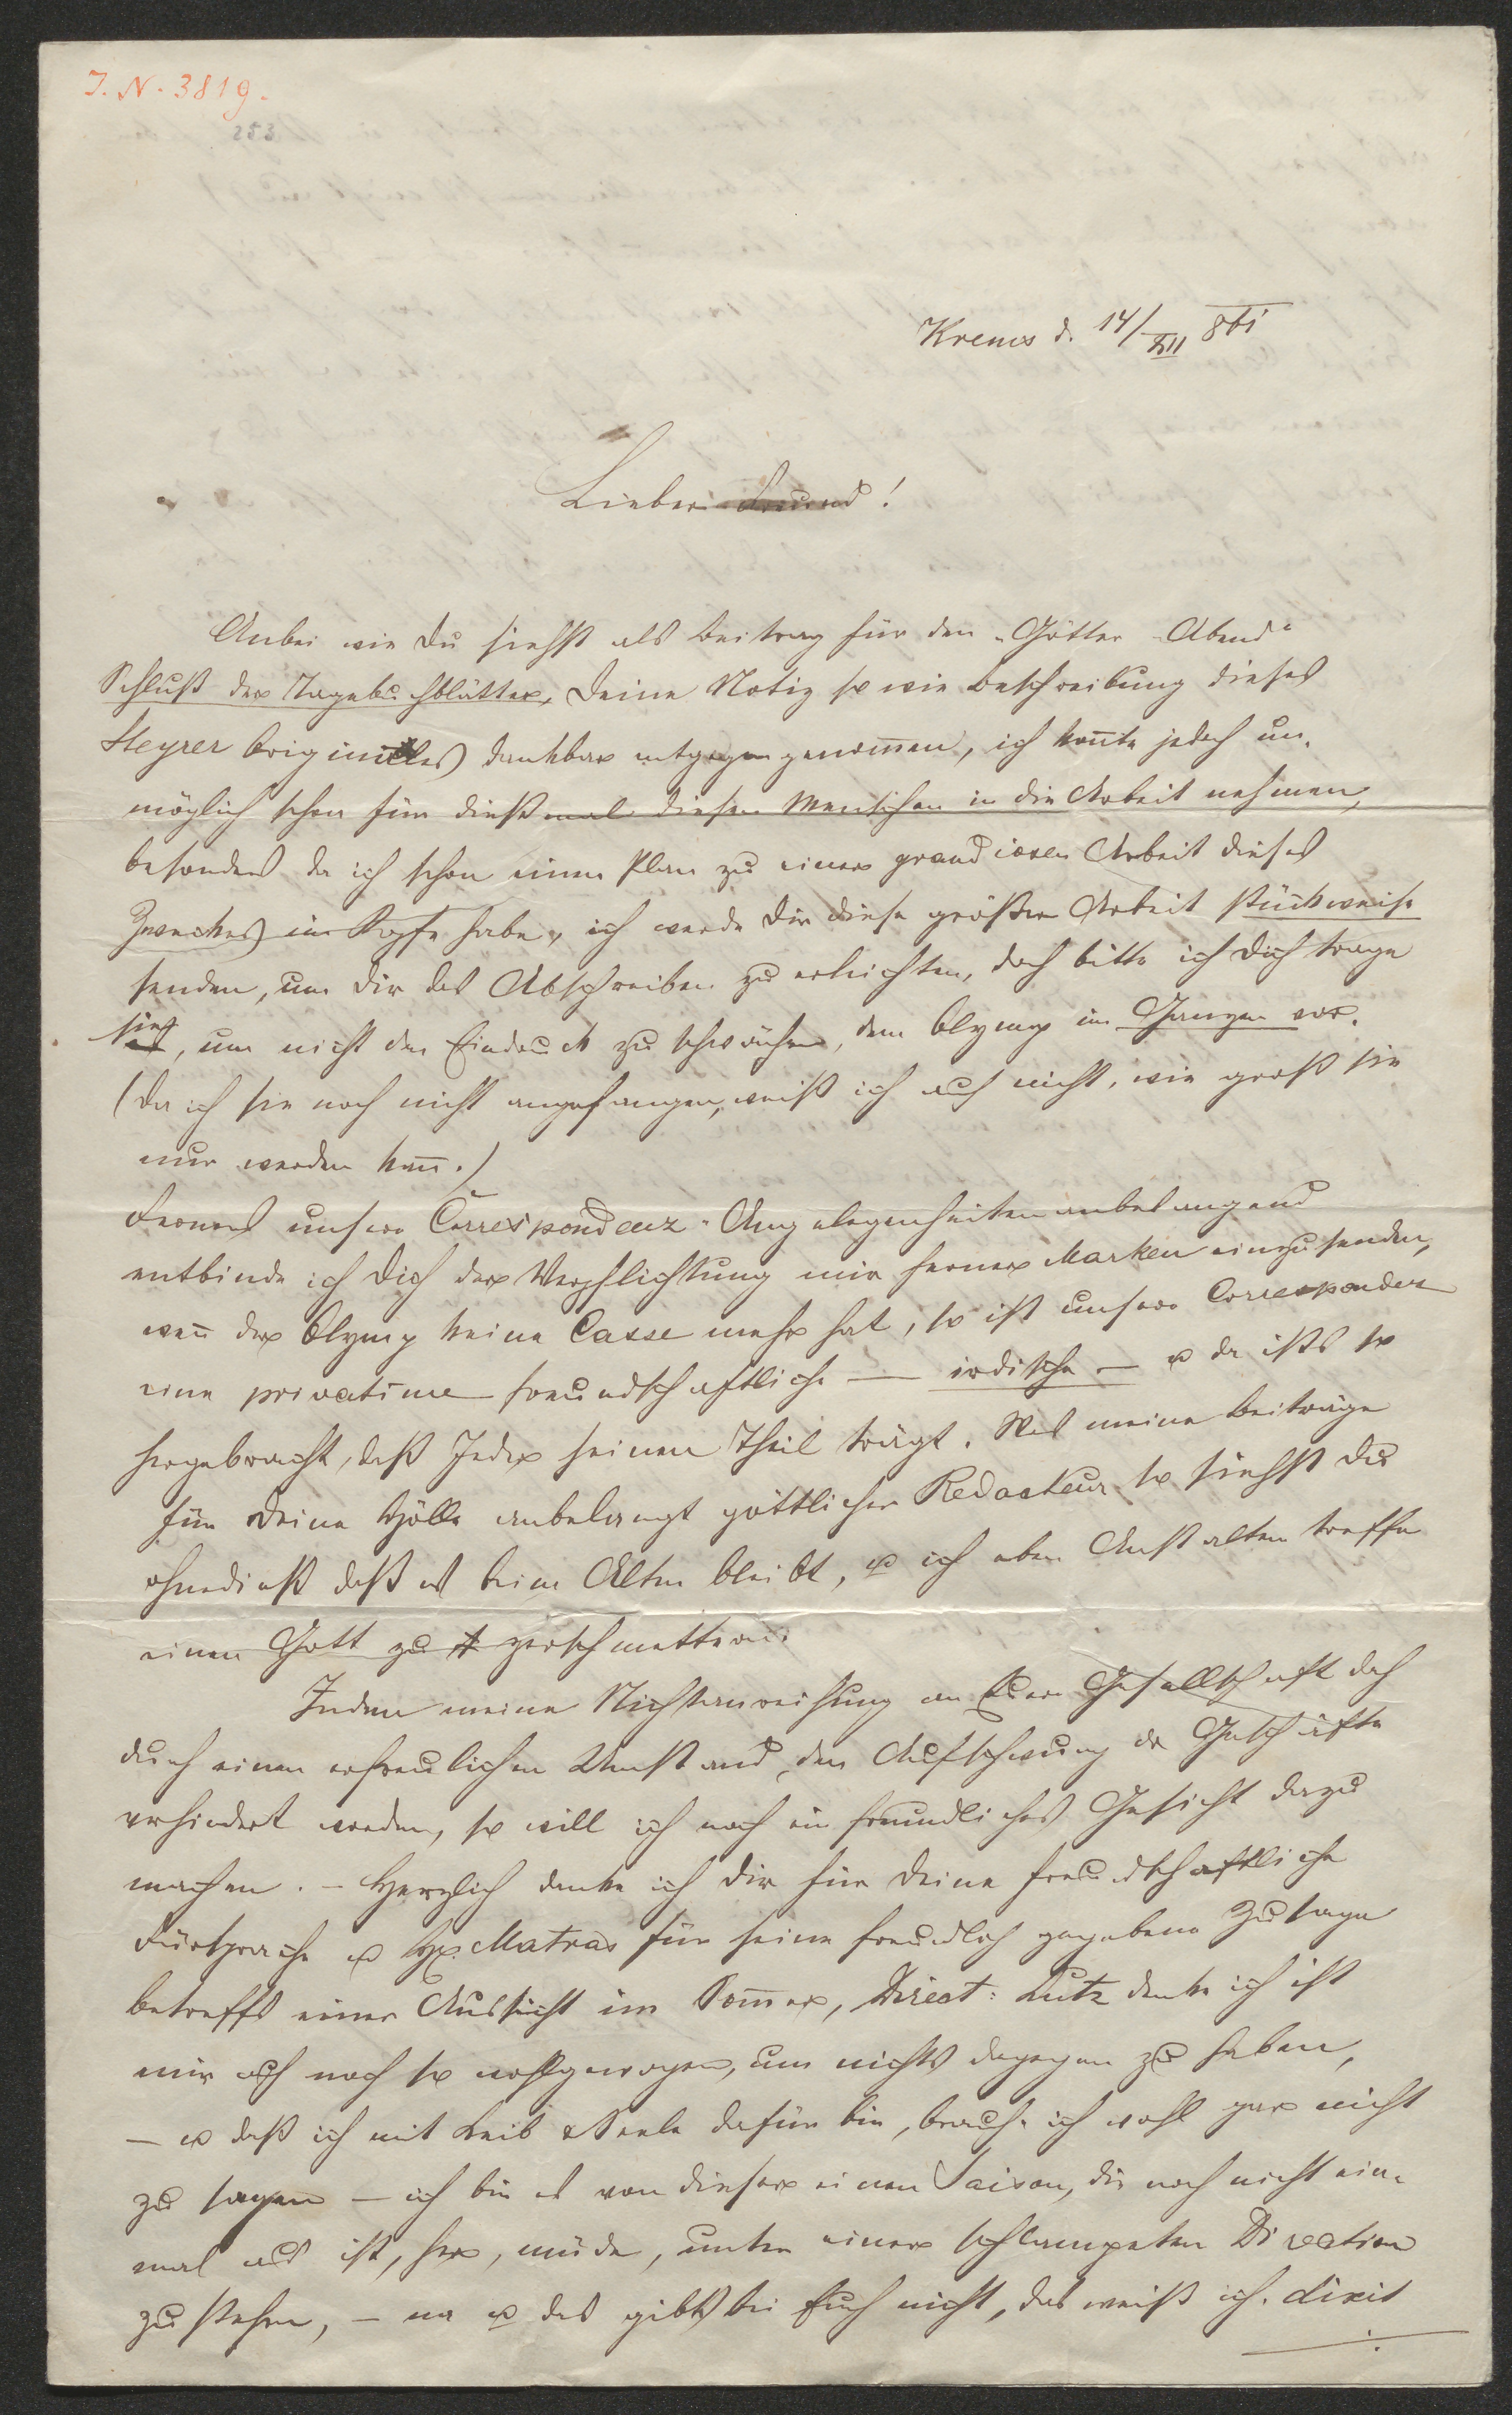 J. N. 3819.
253
Krems d. 14/XII 861
Lieber Freund!
Anbei wie Du siehst als Beitrag für den „Götter-Abend“
Schluß der Tagebuchblätter, Deine Notiz so wie Beschreibung dieses
Steyrer Originales) dankbar entgegen genom̅en, ich kon̅te jedoch un-
möglich schon für dießmal diesen Menschen in die Arbeit nehmen,
besonders da ich schon einen Plan zu einer grandiosen Arbeit dieses
Zweckes) im Kopfe habe, ich werde Dir diese größere Arbeit stückweise
senden, um Dir das Abschreiben zu erleichten, doch bitte ich Dich trage
sie, um nicht den Eindruck zu schwächen, dem Olymp im Ganzen vor.
(Da ich sie noch nicht angefangen, weiß ich auch nicht, wie groß sie
nur werden kan̅.)
Ferners unsere Correspondenz-Angelegenheiten anbelangend
entbinde ich Dich der Verpflichtung mir ferner Marken einzusenden,
wen̅ der Olymp keine Casse mehr hat, so ist unsere Correspondenz
eine privatime freundschaftliche — irdische — u da ists so
hergebracht, daß Jeder seinen Theil trägt. Was meine Beiträge
für Deine Hölle anbelangt göttlicher Redacteur so siehst Du
ohnedieß daß es beim Alten bleibt, u ich eben Anstalten treffe
einen Gott zu zerschmettern.
Indem meine Nichtanreihung an Euere Gesellschaft doch
durch einen erfreulichen Umstand, den Aufschwung der Geschäfte
verhindert worden, so will ich noch ein freundliches Gesicht dazu
machen. – Herzlich danke ich Dir für Deine freundschaftliche
Fürsprache u H. Matras für seine freundlich gegebene Zusage
betreffs einer Aussicht im Som̅er, Direct: Lutz denke ich ist
mir auch noch so wohlgewogen, um nichts dagegen zu haben,
— u daß ich mit Leib & Seele dafür bin, brauche ich wohl gar nicht
zu sagen — ich bin es von dieser einen Saison, die noch nicht ein-
mal aus ist, her, müde, unter einer schlampeten Direction
zu stehen, – na u das gibts bei Euch nicht, das weiß ich. dixit